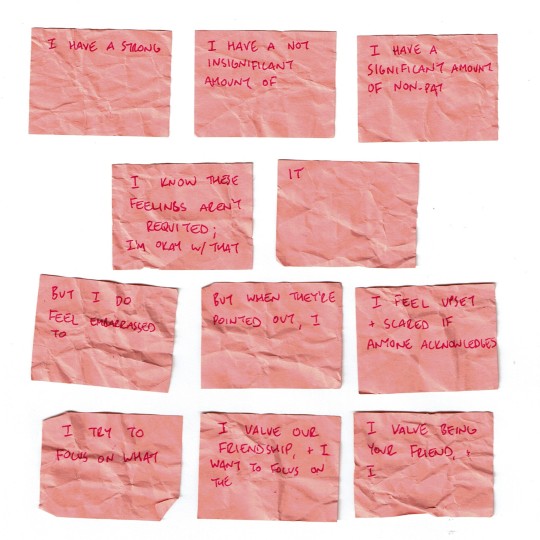 I HAVE A STRONG
I HAVE A NOT
INSIGNIFICANT
AMOUNT OF
I HAVE A
SIGNIFICANT AMOUNT
OF NON-PAT
I KNOW THESE
FEELINGS AREN'T
REQUITED;
I'M OKAY W/ THAT
IT
BUT I DO
FEEL EMBARRASSED
TO
BUT WHEN THEY'RE
POINTED OUT, I
I FEEL UPSET
+ SCARED IF
ANYONE ACKNOWLEDGES
I TRY TO
FOCUS ON WHAT
I VALUE OUR
FRIENDSHIP, + I
WANT TO FOCUS ON
THE
I VALUE BEING
YOUR FRIEND, +
I